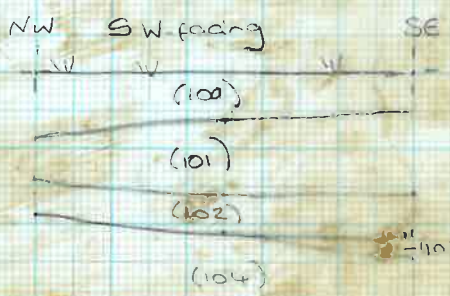 NW SW-facing SE
(100)
(101)
(102)
(104)